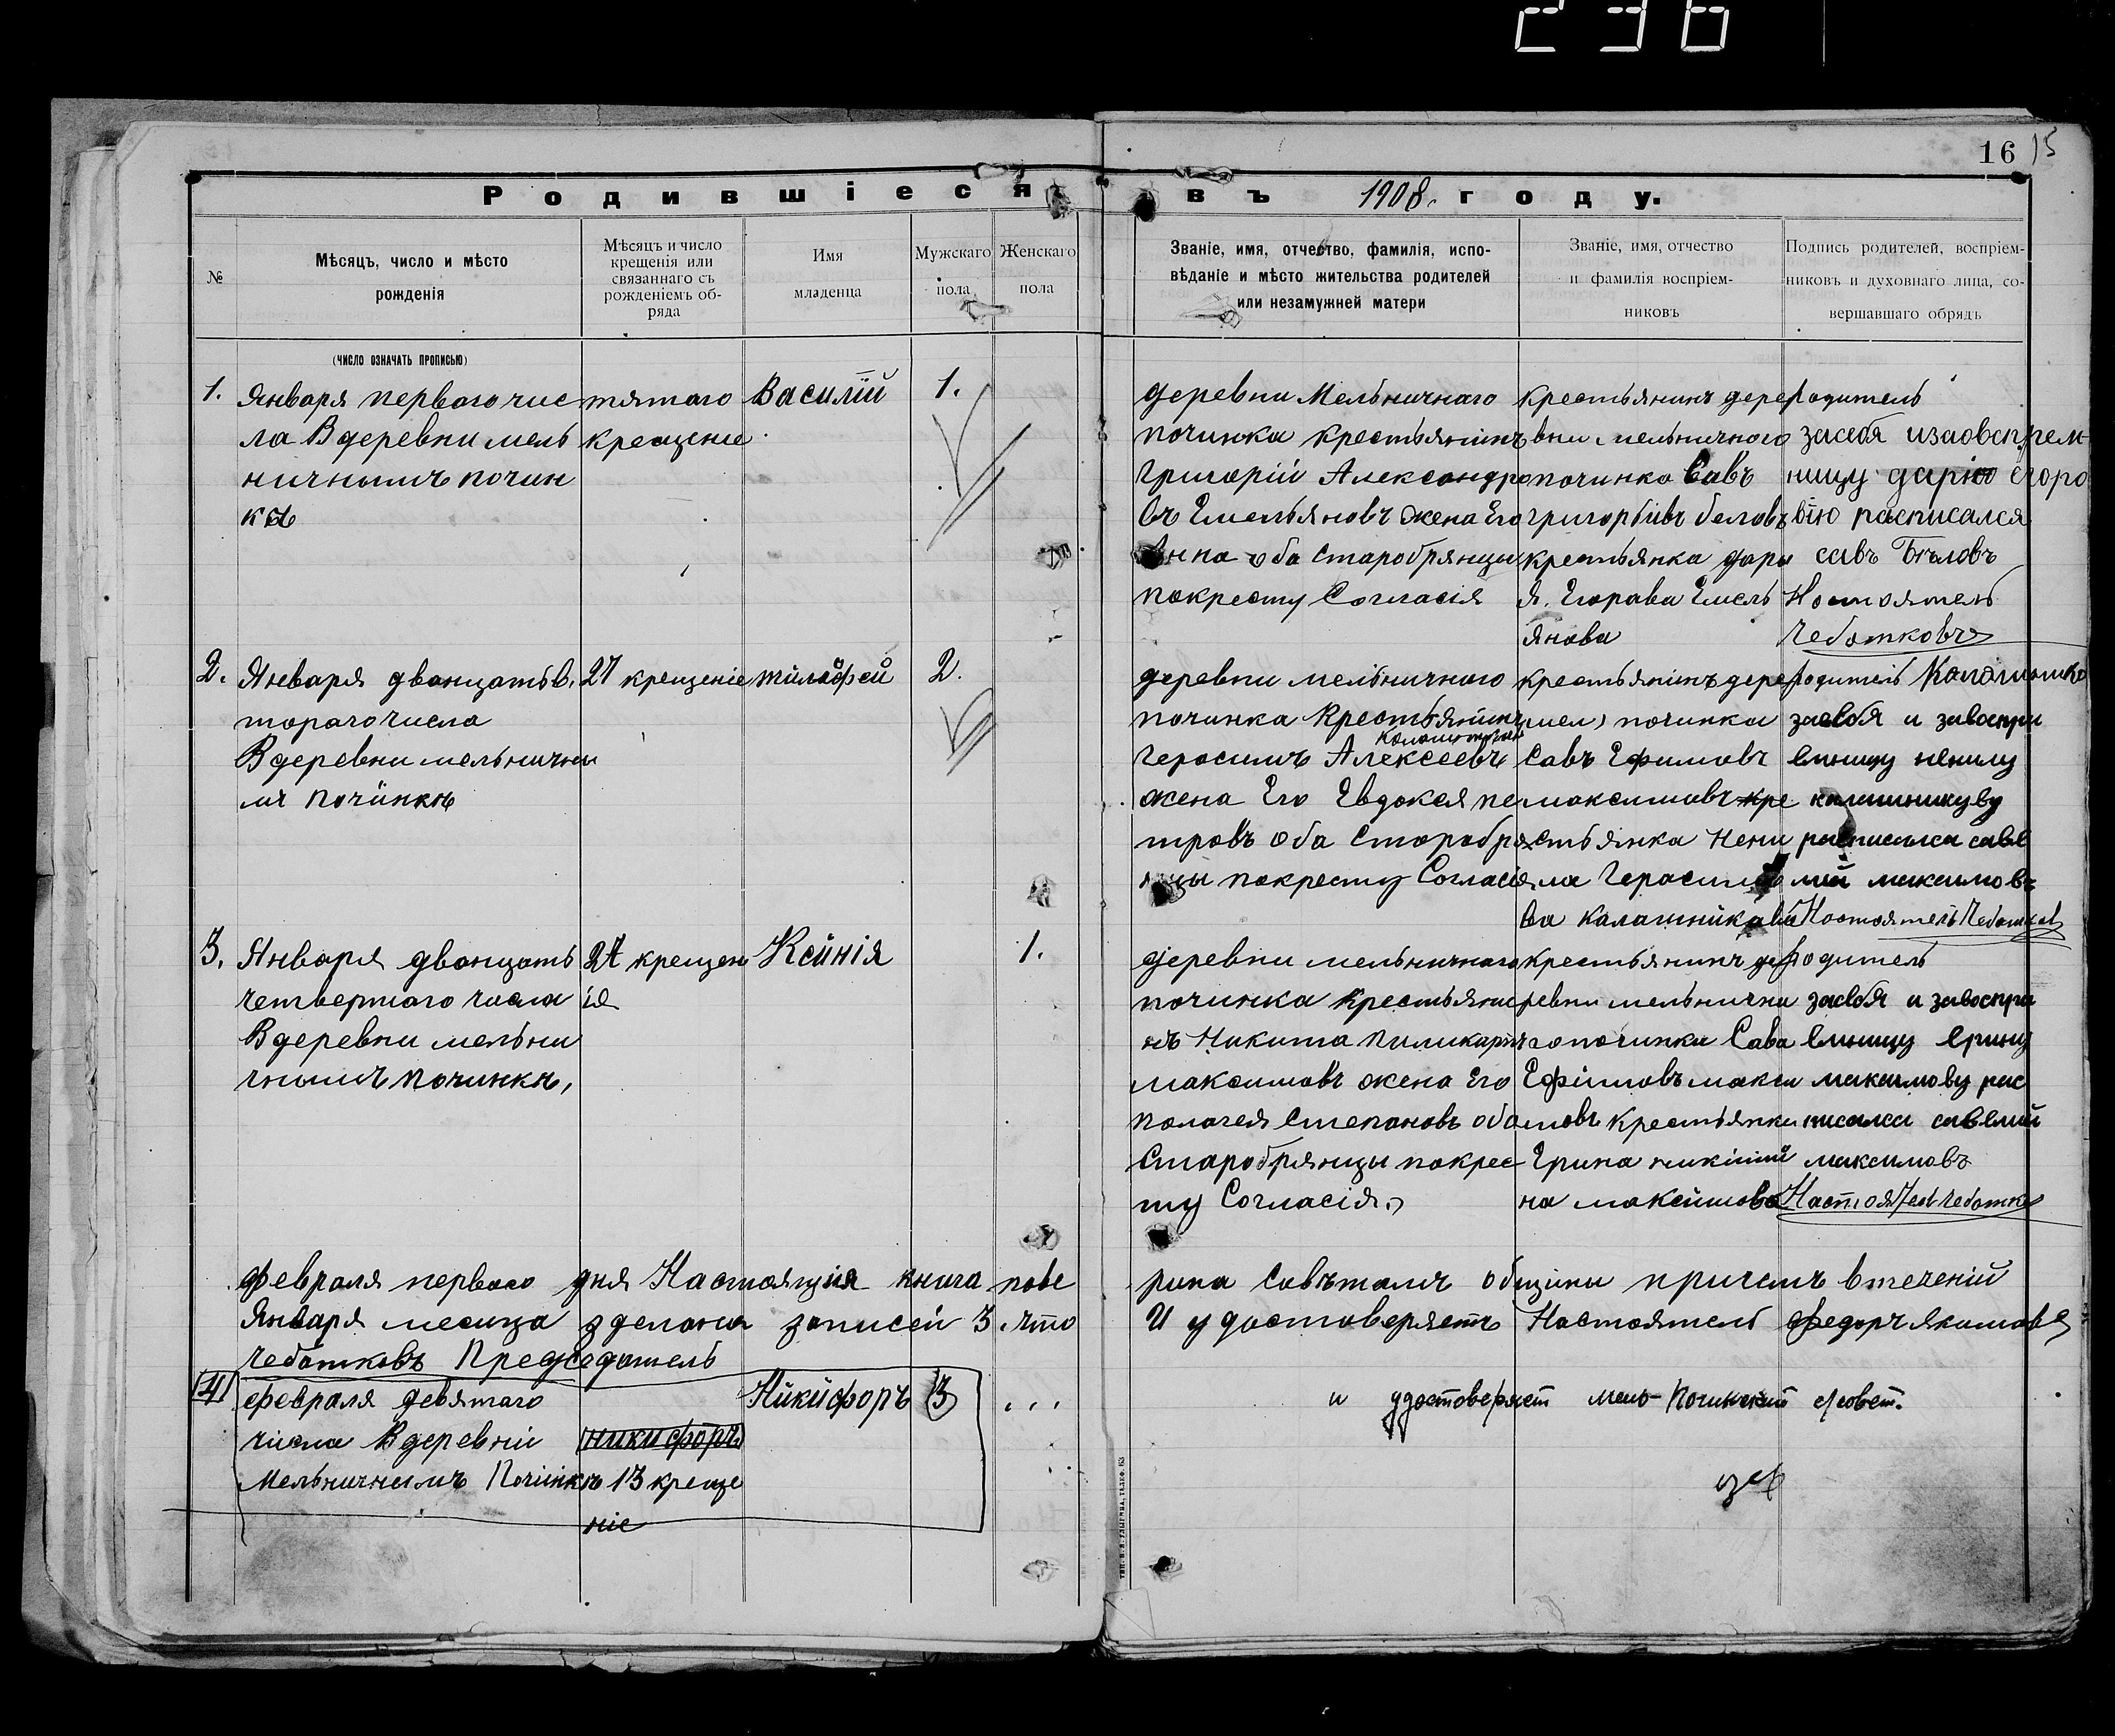 236
16 15
Родившіеся въ 1908. году.
№
Мѣсяцъ, число и мѣсто
рожденія
Мѣсяцъ и число
крещенія или
связаннаго съ
рожденіемъ об-
ряда
Имя
младенца
Мужскаго
пола
Женскаго
пола
Званіе, имя, отчество, фамилія, испо-
вѣданіе и мѣсто жительства родителей
или незамужней матери
Званіе, имя, отчество
и фамилія воспріем-
никовъ
Подпись родителей, воспріем-
никовъ и духовнаго лица, со-
вершавшаго обрядъ
(число означать прописью)
1.
Января первого чис
ла В деревни мель
ничнымъ почин
кѣ
тятаго
крещеніе
Василій
1.
деревни Мельничнаго
починка крестьянинъ
Григорій Александро
въ Емельяновъ жена Его
Анна оба Старобрянцы
покресту Согласія
крестьянинъ дере
вни мельничного
починка Савъ
григорьивъ беловъ
крестьянка дарь
я. Егорава Емель
янова
Родитель
засебя изаовспрем
ницу дарію Егоро
вію расписался
савъ Бѣловъ
Ностоятель
Чеботковъ
2.
Января дванцать в.
торагочисла
В деревни мельнични
мъ Починкѣ
27 крещеніе
тимофей
2.
деревни мельничного
починка Крестьянинъ
Герасимъ Алексеевъ
жена Его Евдокея пе
тровъ оба Старобря
нцы покресту Согласія
крестьянинъ дере
мел) починка
Савъ Ефимовъ
максимовъ кре
стьянка Нени
ла Герасимо
ва Калашникова
Родитель
засебя и завоспри
емницу ненилу
калашникуву
расписалса саве
лий максимовъ
Ностоятель Чеботков
3.
Января дванцать
четвертаго числа
В деревни мельни
чнымъ починкѣ,
27 крещен
ія
Ксинія
1.
деревни мельничнаго
починка Крестьяни
нъ Никита Пиликарпъ
максимовъ жена Его
полагея Степановъ оба
Старобрянцы покрес
ту Согласія.
крестьянинъ де
ревни мельнични
гопочинки Сава
Ефимовъ макси
мовъ Крестьянка
Ерина никити
на максимова
Родитель
засебя и завоспри
емницу ерину
максимову рас
писалси савелий
максимовъ
Настоятель Чеботко
февраля первого дня Настоящия книга пове рина Совѣтомъ общини причемъ втечений
Января месица зделона записей 3. что И удостоверяетъ Настоятель Федоръ Якимовъ
Чеботковъ Председатель
4
февраля девятаго
числа В деревни
Мельничнымъ Починкѣ
никифоръ
13 креще
ніе
Никифоръ
3
...
и удостоверяет Мель-Починский с/совет.